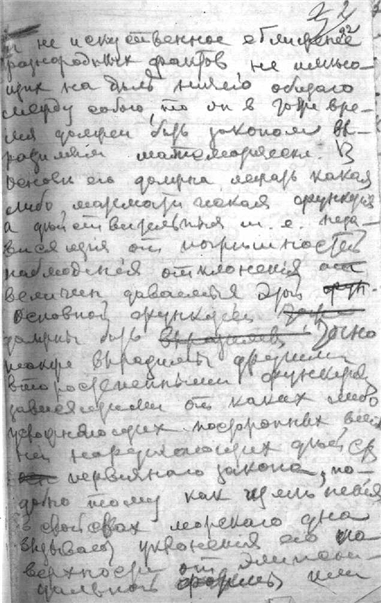 32
и не искусственное сближение
разнородных фактов не имею-
щих на деле ничего общего
между собою, то он в то же вре-
мя должен быть законом вы-
разимым математически. В
основе его должна лежать какая
либо математическая функция
а действительныя т. е. неза-
висящия от погрешностей
наблюдения отклонения
величин даваемых этой
основной функцией
должны быть выразимы точно
также выразимы другими
второстепенными функциями
зависящими от каких либо
усложняющих посторонних
не нарушающих действ
первичного закона, по-
добно тому как
в свойствах морского дна
вызывает уклонения его по
верхности от эллипсои-
дальной формы или